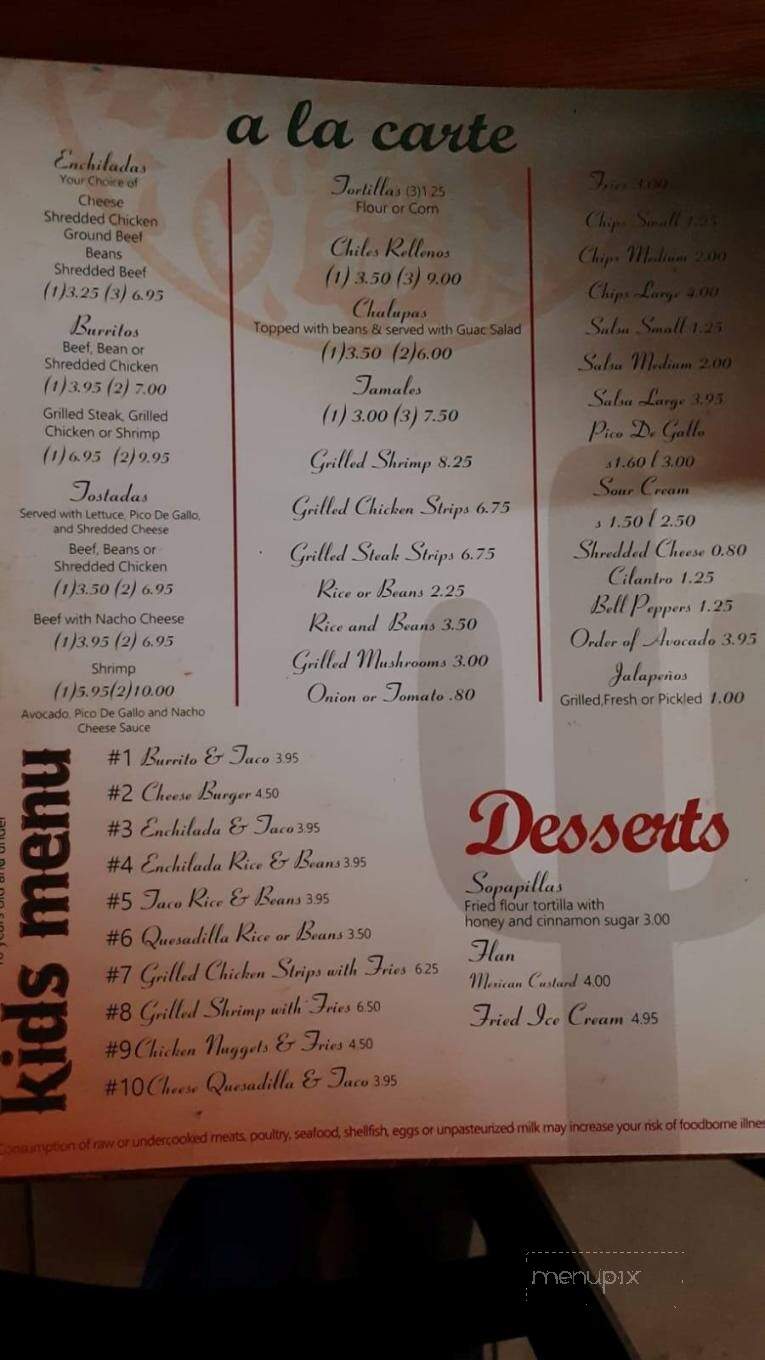 a la carte
Enchiladas
Your Choice of
Cheese
Shredded Chicken
Ground Beef
Beans
Shredded Beef
(1)3.25 (3) 6.95
Burritos
Beef, Bean or
Shredded Chicken
(1)3.95 (2) 7.00
Grilled Steak, Grilled
Chicken or Shrimp
(1)6.95 (2)9.95
Tostadas
Served with Lettuce, Pico De Gallo,
and Shredded Cheese
Beef, Beans or
Shredded Chicken
(1)3.50 (2) 6.95
Beef with Nacho Cheese
(1)3.95 (2) 6.95
Shrimp
(1)5.95(2)10.00
Avocado, Pico De Gallo and Nacho
Cheese Sauce
Tortillas (3)1.25
Flour or Corn
Chiles Rellenos
(1) 3.50 (3) 9.00
Chalupas
Topped with beans & served with Guac Salad
(1)3.50 (2)6.00
Tamales
(1) 3.00 (3) 7.50
Grilled Shrimp 8.25
Grilled Chicken Strips 6.75
Grilled Steak Strips 6.75
Rice or Beans 2.25
Rice and Beans 3.50
Grilled Mushrooms 3.00
Onion or Tomato .80
Fries 3.00
Chips Small 1.25
Chips Medium 2.00
Chips Large 4.00
Salsa Small 1.25
Salsa Medium 2.00
Salsa Large 3.95
Pico De Gallo
s1.60 l 3.00
Sour Cream
s 1.50 l 2.50
Shredded Cheese 0.80
Cilantro 1.25
Bell Peppers 1.25
Order of Avocado 3.95
Jalapeños
Grilled,Fresh or Pickled 1.00
kids menu
10 years old and under
#1 Burrito & Taco 3.95
#2 Cheese Burger 4.50
#3 Enchilada & Taco 3.95
#4 Enchilada Rice & Beans 3.95
#5 Taco Rice & Beans 3.95
#6 Quesadilla Rice or Beans 3.50
#7 Grilled Chicken Strips with Fries 6.25
#8 Grilled Shrimp with Fries 6.50
#9 Chicken Nuggets & Fries 4.50
#10 Cheese Quesadilla & Taco 3.95
Desserts
Sopapillas
Fried flour tortilla with
honey and cinnamon sugar 3.00
Flan
Mexican Custard 4.00
Fried Ice Cream 4.95
Consumption of raw or undercooked meats, poultry, seafood, shellfish, eggs or unpasteurized milk may increase your risk of foodborne illnes
menupix